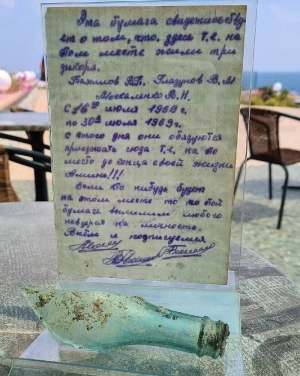 Эта бумага свидетельству
ет о том, что, здесь т.е. на
этом месте жили три
дикаря.
В.Г. Глазунов В.М
Москаленко В.Н.
С 16го июля 1969 г.
по 30го июля 1969г.
с этого дня они обязуются
приезжать сюда т.е. на это
место до конца своей жизни
Аминь!!!
Если кто нибудь будет
на этом месте то по этой
бумаге выгоним любого
невзирая на личность.
В чём и подписуемся